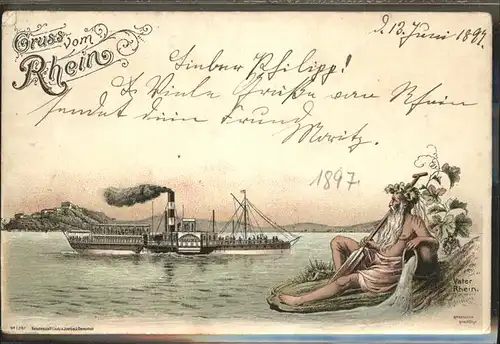 Gruss vom
Rhein
d. 13. Juni 1897.
Lieber Philipp!
Viele Grüße vom Rhein
sendet dein Freund
Moritz.
1897.
Vater
Rhein.